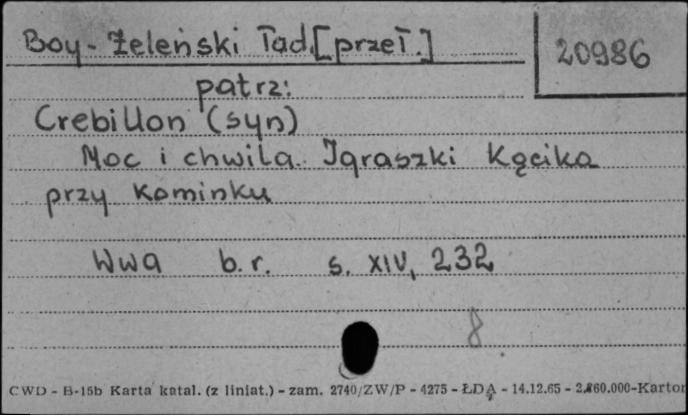 Boy-Żeleński Tad. [przeł.]
20986
patrz:
Crebillon (syn)
Moc i chwila. Igraszki kącika
przy kominku
Wwa b.r. s. XIV, 232
8
CWD - B-15b Karta katal. (z liniat.) - zam. 2740/ZW/P - 4275 - ŁDA - 14.12.65 - 2.860.000-Karton